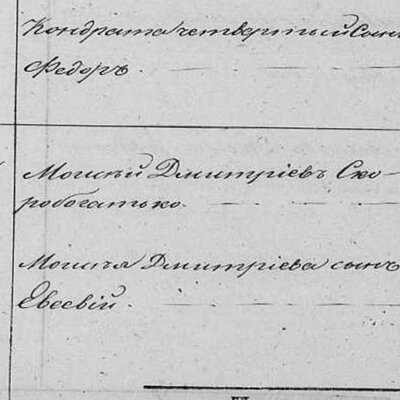 Кондрата четвертый Сынъ
Федоръ.
Моисѣй Дмитріевъ Ско-
робогатько.
Моисѣя Дмитріева сынъ
Евсевій.